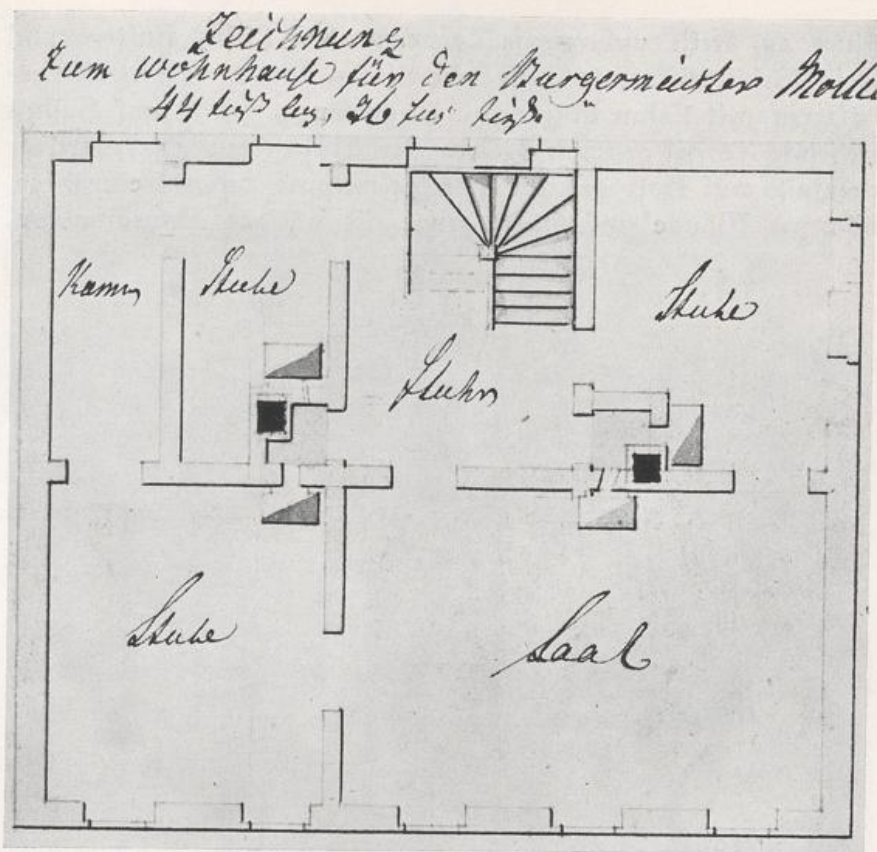 Zeichnung
zum wohnhause für den Burgermeister
44 fuß 36 fus
Kamm Stube Stube
Fluhr
Stube Saal